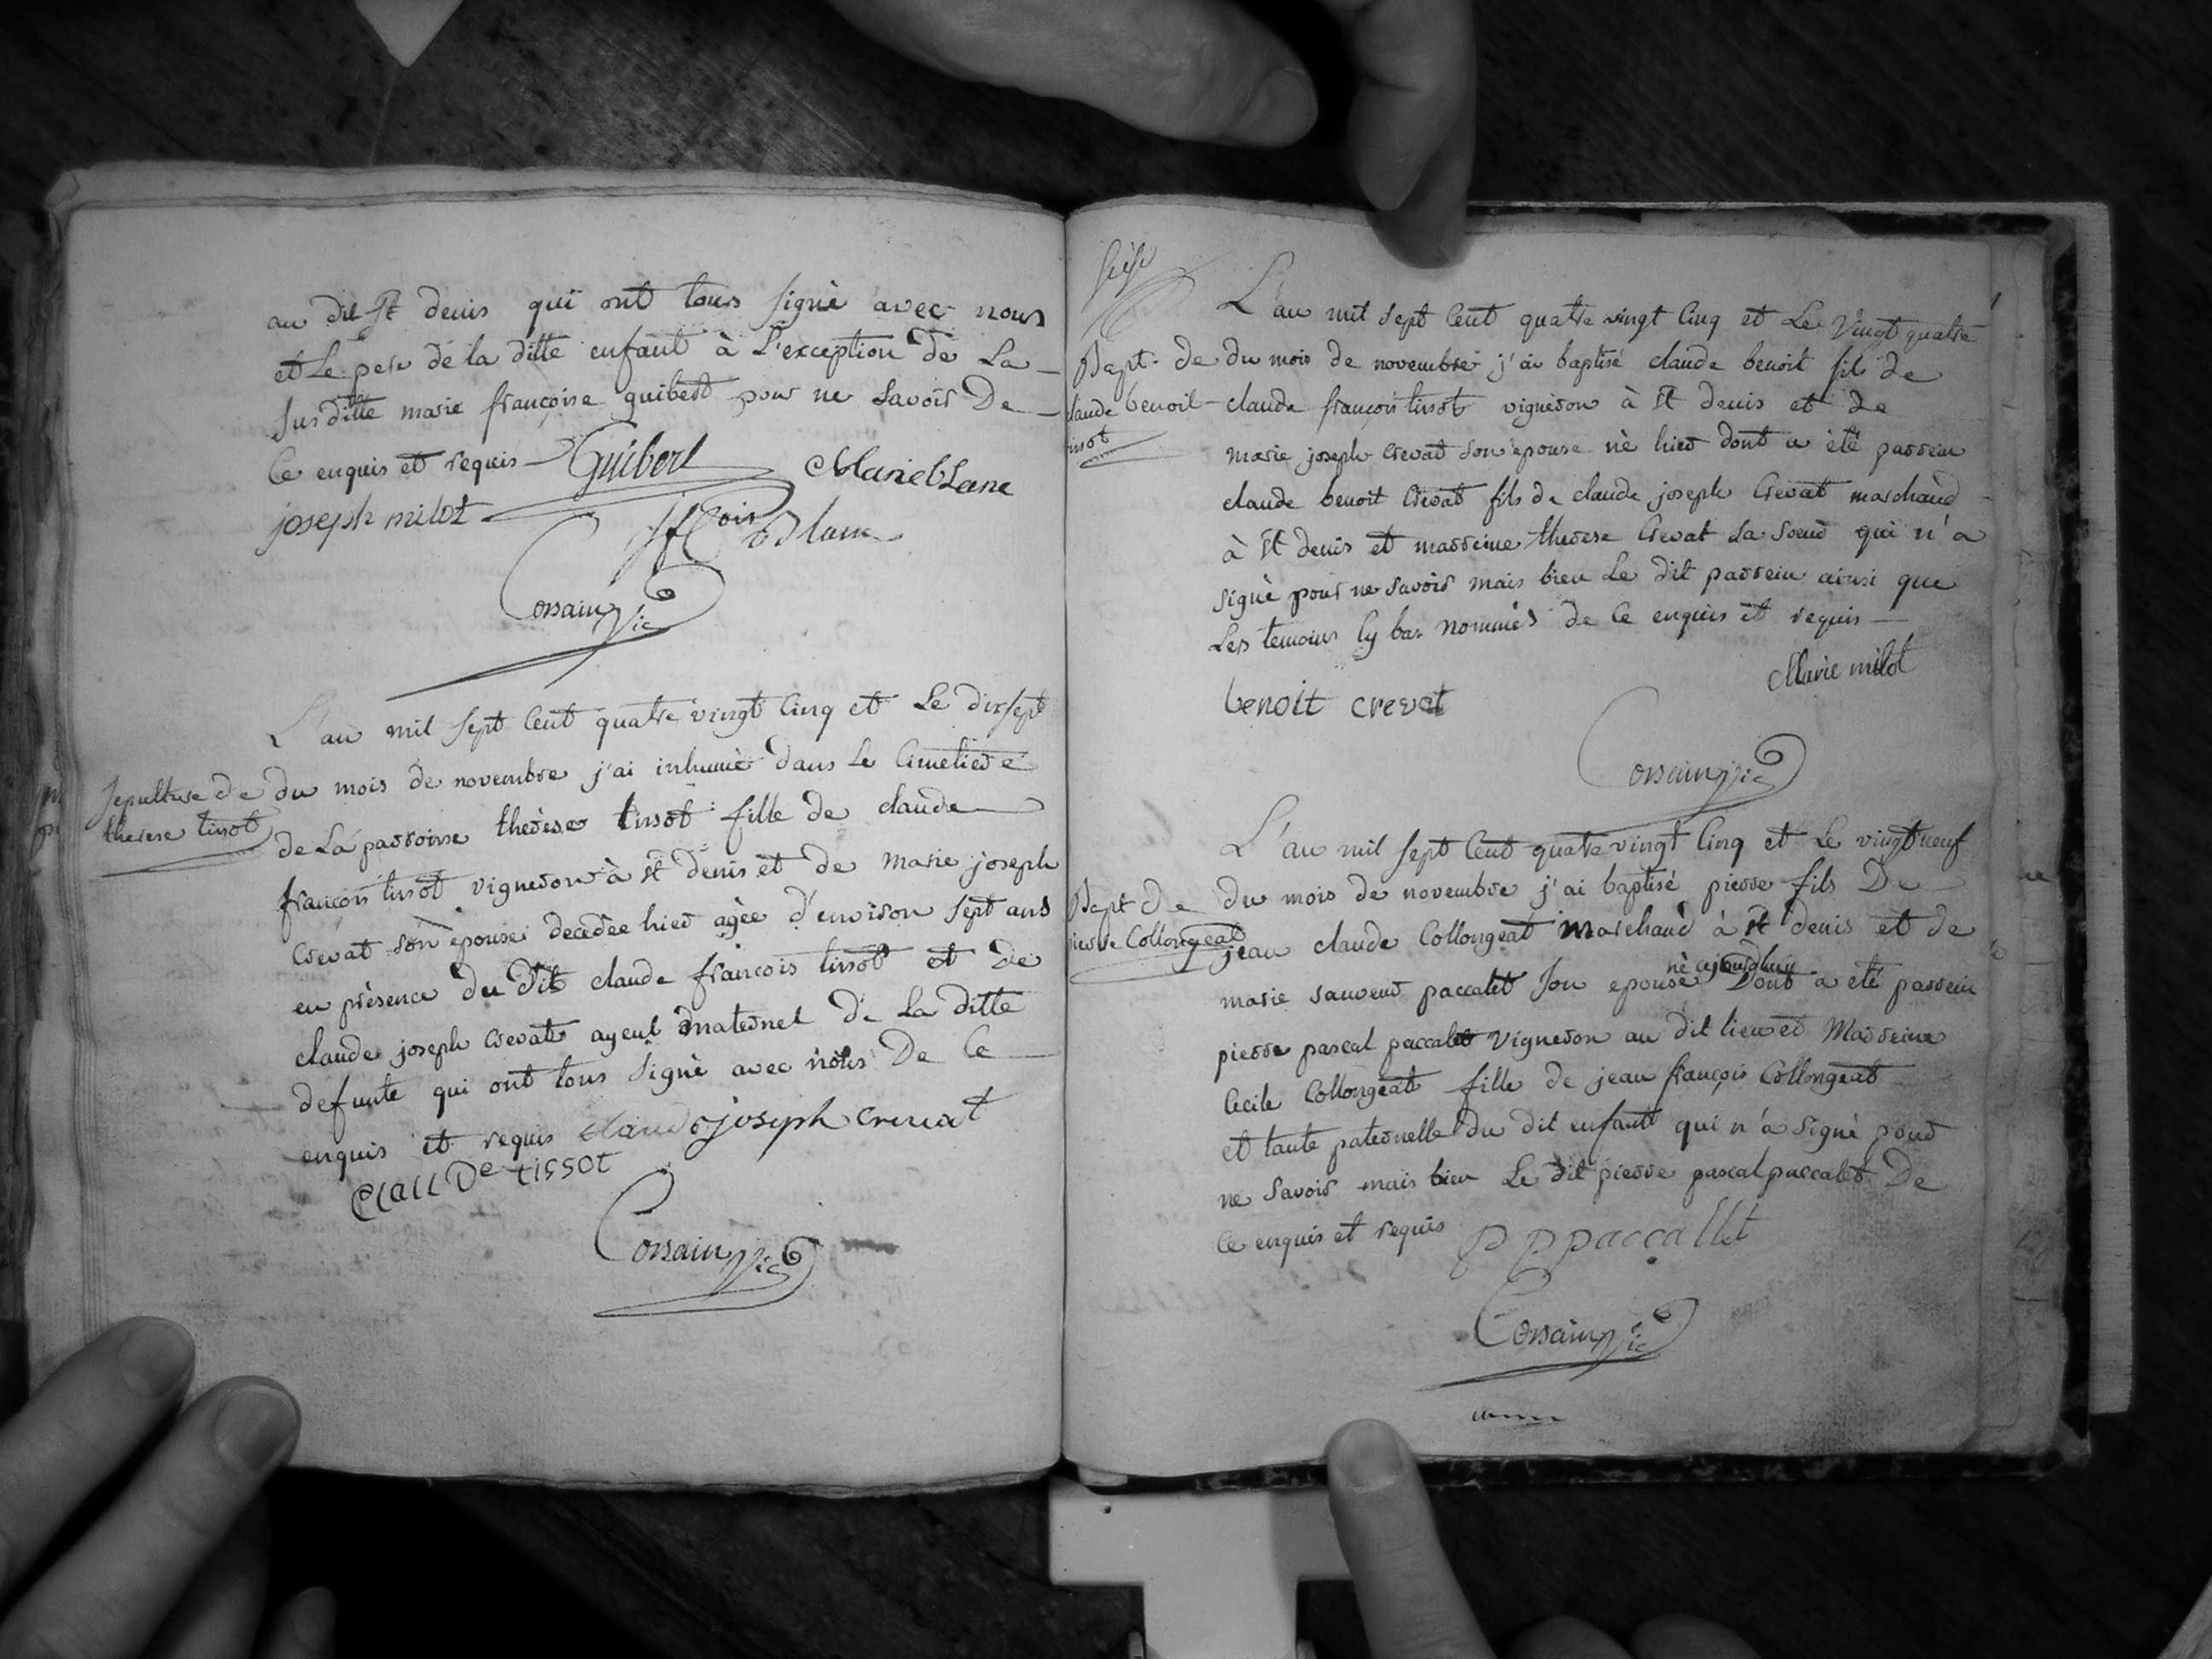 au dit st denis qui ont tous signè avec nous
et Le pere de la ditte enfant à L'exception de La
susditte marie françoise guibert pour ne savoir De
ce enquis et requis Guibert Marie blanc
joseph milot
Blanc
Corsain Vic
L'an mil sept cent quatre vingt cinq et Le dixsept
Sepulture de
therese tissot
du mois de novembre j'ai inhumè dans Le cimetiere
de La parroisse thèrese tissot fille de claude
françois tissot vigneron à st denis et de marie joseph
crevat son èpouse decèdèe hier agèe d'environ sept ans
en prèsence du dit claude françois tissot et De
claude joseph crevat ayeul maternel de La ditte
defunte qui ont tous signè avec nous De ce
enquis et requis claude joseph crevat
claude tissot
Corsain Vic
seize
L'an mil sept cent quatre vingt cinq et Le vingt quatre
Bapt. de
claude benoit
tissot
du mois de novembre j'ai baptisé claude benoit fils de
claude françois tissot vigneron à st denis et de
marie joseph crevat son èpouse nè hier dont a été parrein
claude benoit crevat fils de claude joseph crevat marchand
à st denis et marreine therese crevat sa soeur qui n'a
signè pour ne savoir mais bien Le dit parrein ainsi que
Les temoins cy bas nommès de ce enquis et requis
Marie milot
benoit crevat
Corsain Vic
L'an mil sept cent quatre vingt cinq et Le vingt neuf
Bapt De
pierre Collongeat
du mois de novembre j'ai baptisé pierre fils De
jean claude Collongeat marchand à st denis et de
nè cejourdhuy
marie sauveur paccalet son epouse Dont a été parrein
pierre pascal paccalet vigneron au dit lieu et Marreine
Cecile Collongeat fille de jean françois Collongeat
et tante paternelle du dit enfant qui n'a signè pour
ne savoir mais bien Le dit pierre pascal paccalet De
ce enquis et requis p p paccallet
Corsain Vic